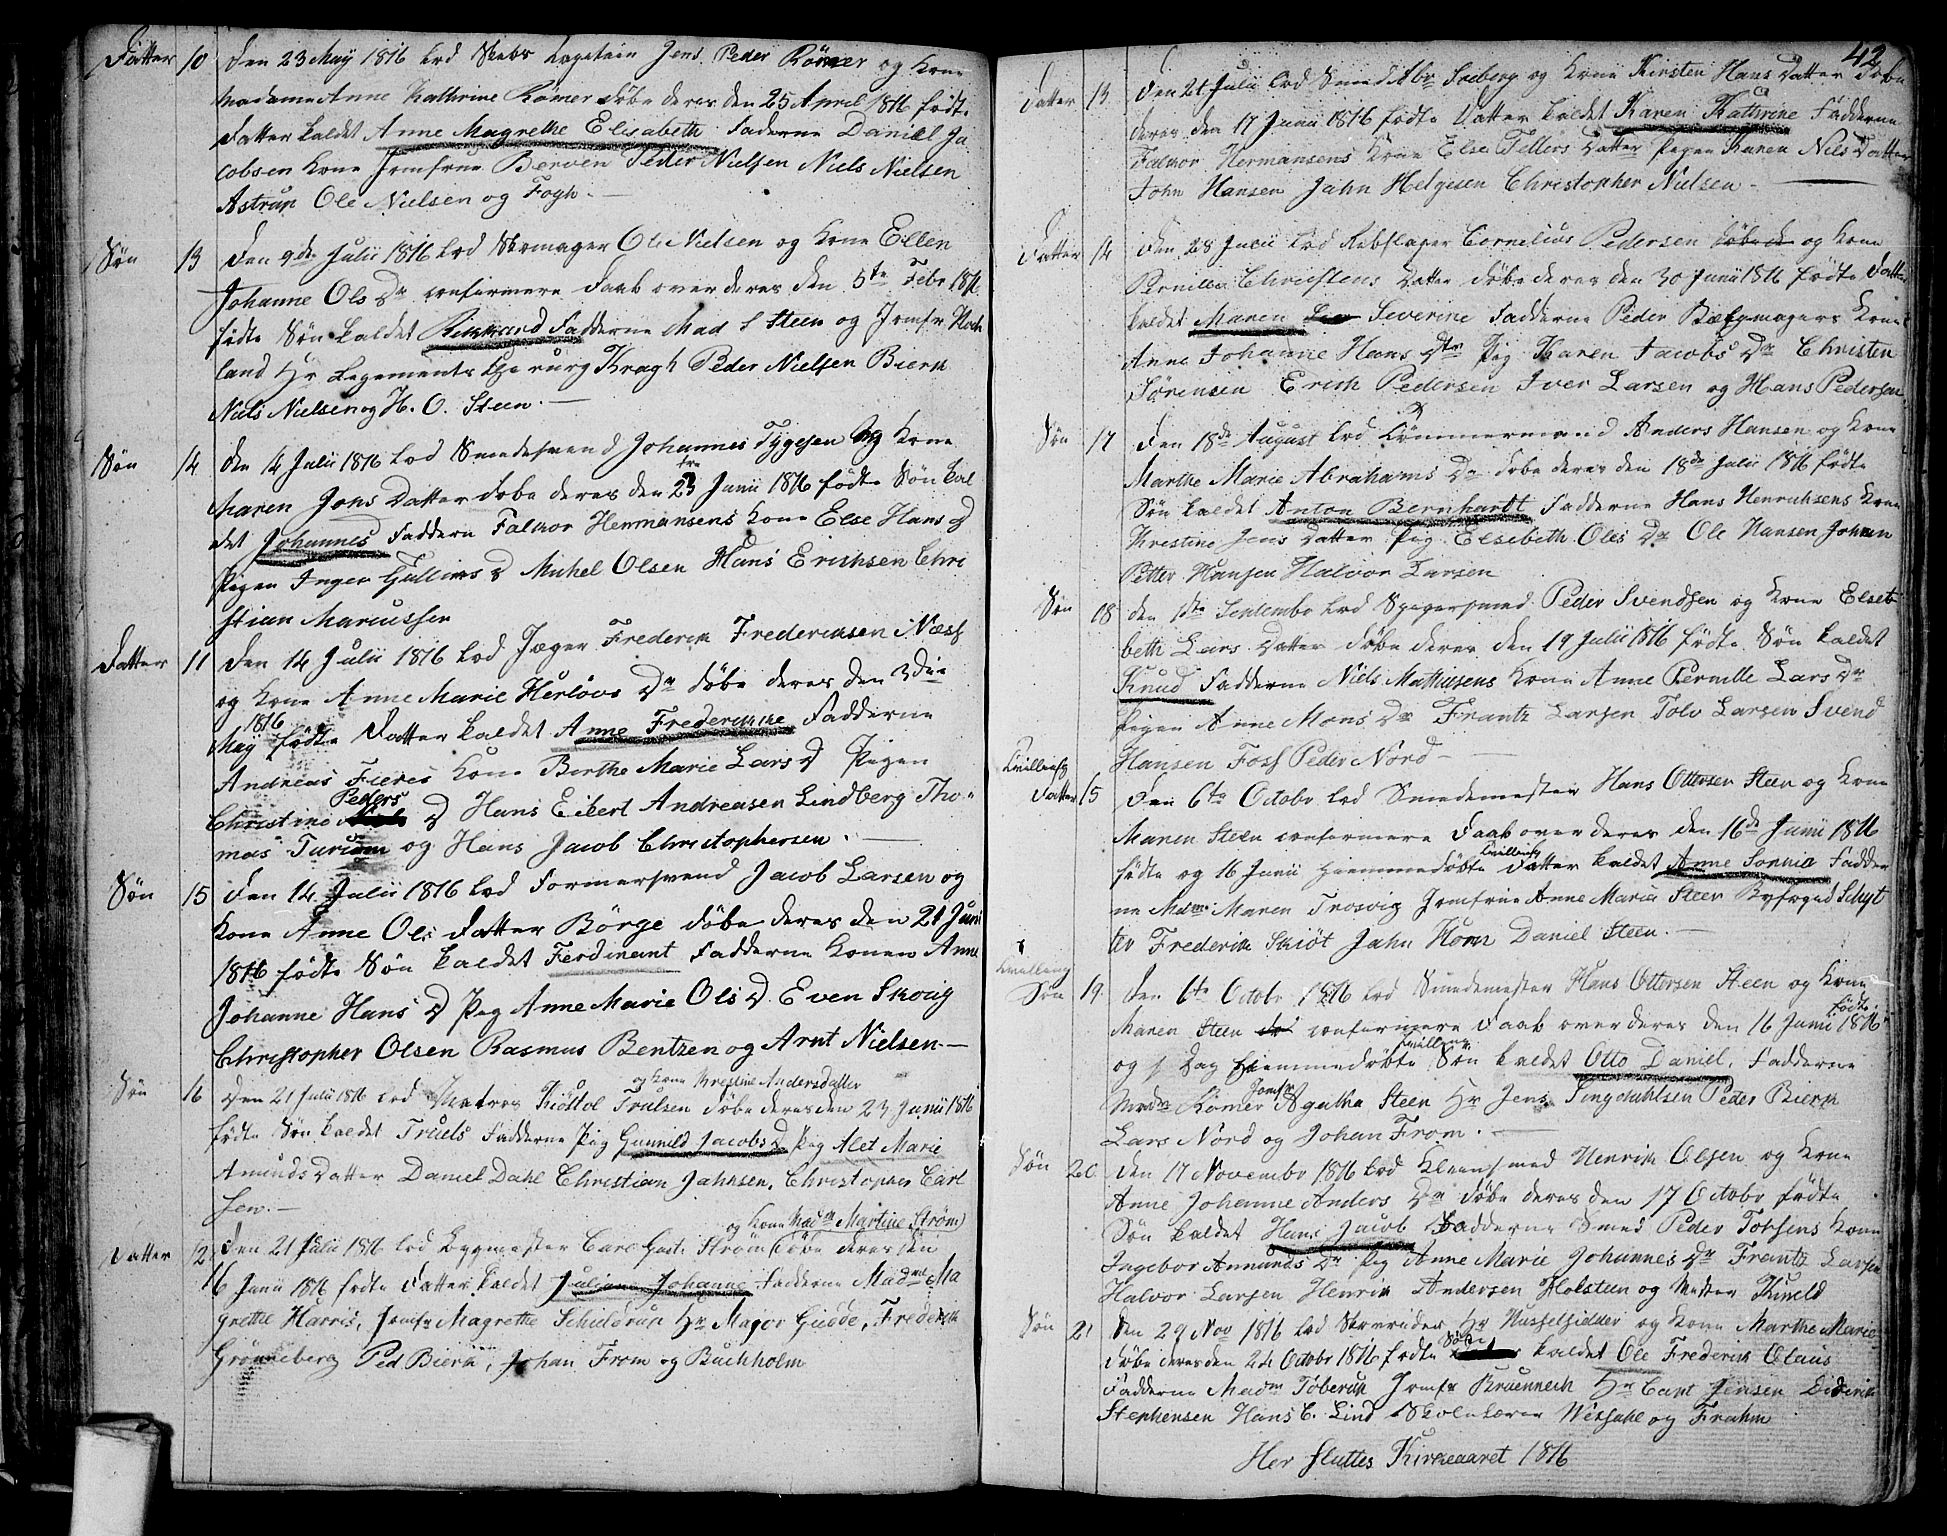 Datter 10 Den 23 May 1816 lod Skibs Capitain Jens Peder Römer og Kone
Madame Anne Kathrine Römer döbe deres den 25 April 1816 födte
Datter kaldet Anne Magrethe Elisabeth Faderne Daniel Ja
cobsen Kone Jomfrue Berven Peder Nielsen Niels Nielsen
Astrup Ole Nielsen og Fogh.
Søn 13 Den 9de Julii 1816 lod Skomager Ole Nielsen og Kone Ellen
Johanne Ols Dr confermere Daab over deres den 5te Febr 1816
födte Søn kaldet Fadderne Mad S Steen og Jomfr
land Hr Kragh Peder Nielsen Bierk
Niels Nielsen og H. O. Steen.
Søn 14 Den 14 Julii 1816 lod Smedesvend Johannes Tygesen og Kone
Maren Jons Datter döbe deres den 23 Junii 1816 födte Søn kal
det Johannes Faddern Falkor Hermansens Kone Else Hans D
Pigen Inger D Mickel Olsen Hans Erichsen Chri
stian Marcussen
Datter 11 Den 14 Julii 1816 lod Jæger Frederik Frederiksen Næss
og Kone Anne Marie Herlovs Dr döbe deres den 3die
May 1816 födte Datter kaldet Anne Frederikke Fadderne
Andreas Kone Berthe Marie Lars D Pigen
Christine Peders D Hans Eibert Andreasen Lindberg Tho-
mas og Hans Jacob Christophersen.
Søn 15 Den 14 Julii 1816 lod Formersvend Jacob Larsen og
Kone Anne Ols Datter Börge döbe deres den 21 Juni
1816 födte Søn kaldet Ferdinant Fadderne Konen Anne
Johanne Hans D Pig Anne Marie Ols D. Even Skovig
Christopher Olsen Rasmus Bentzen og Arnt Nielsen.
Søn 16 Den 21 Julii 1816 lod Matros Kiöstol Trulsen og Kone Krestine Andersdatter döbe deres den 23 Junii 1816
födte Søn kaldet Truels Fadderne Pig Gunnild Jacobs D Pig Alet Marie
Amunds Datter Daniel Dahl Christian Jahnsen, Christopher Carl
sen.
Datter 12 Den 21 Julii 1816 lod Byggmester Carl Gust. Ström og Kone Madm Martine Ström döbe deres den
16 Junii 1816 födte Datter kaldet Juliane Johanne Fadderne Madme Ma
grethe Harris, Jomfr Magrethe Schieldrup Hr Major Gudde, Frederik
Grönneberg Ped Bierk, Johan From og Buchholm
42
Datter 13 Den 21 Julii lod Smed Abr Soeberg og Kone Kirsten Hans Datter döbe
deres den 17 Junii 1816 födte Datter kaldet Karen Kathrine Fadderne
Falkor Hermansens Kone Else Tellefs Datter Pigen Karen Nils Datter
John Hansen Jahn Helgesen Christopher Nielsen.
Datter 14 Den 28 Julii lod Rebslager Cornelius Pedersen og Kone
Pernille Christens Datter döbe deres den 30 Junii 1816 födte Datter
kaldet Maren Severine Fadderne Peder Bøssemagers Kone
Anne Johanne Hans Dtr Pig Karen Jacobs Dr Christen
Sörensen Erich Pedersen Iver Larsen og Hans Pedersen.
Søn 17 Den 18de August lod Tömmermand Anders Hansen og Kone
Marthe Marie Abrahams Dr döbe deres den 18de Julii 1816 födte
Søn kaldet Anton Bernhardt Fadderne Hans Henrichsens Kone
Krestine Jens Datter Pig Elsebeth Ols Dr Ole Hansen Johan
Petter Hansen Halvor Larsen
Søn 18 Den 1ste Septembr lod Spigersmed Peder Svendsen og Kone Elseb
beth Lars Datter döbe deres den 19 Julii 1816 födte Søn kaldet
Knud Fadderne Niels Mathisens Kone Anne Pernille Lars Dr
Pigen Anne Mons Dr Frantz Larsen Tolv Larsen Svend
Hansen Foss Peder Nord
Tvilling
Datter 15 Den 6te Octobr lod Smedemester Hans Ottersen Steen og Kone
Maren Steen confermere Daab over deres den 16de Junii 1816
födte og 16 Junii Hiemmedöbte Tvilling Datter kaldet Anne Sophia Fadder
ne Mdme Maren Trosvig Jomfrue Anne Maria Steen Byfoged Schyt
ter Frederik Skiöt Jahn Horn Daniel Steen.
Tvilling
Søn 19. Den 6te Octobr 1816 lod Smedemester Hans Ottersen Steen og Kone
Maren Steen confermere Daab over deres den 16 Junii 1816 födte
og s Dag Hiemmedöbte Tvilling Søn kaldet Otto Daniel. Fadderne
Mdm Römer Jomfr Agatha Steen Hr Jens Tingdahlsen Peder Bierk
Lars Nord og Johan From.
Søn 20 Den 17 Novembr 1816 lod Kleensmed Henrik Olsen og Kone
Anne Johanne Anders Dr döbe deres den 17 Octobr födte
Søn kaldet Hans Jacob Fadderne Smed Peder Torsens Kone
Ingebor Amunds Dr Pig Anne Marie Johannes Dr Frantz Larsen
Halvor Larsen Henrik Andersen Holsteen og Mester
Søn 21 Den 29 Nov 1816 lod Hr Husselsidder og Kone Marthe Marie
döbe deres den 24 Octobr 1816 födte Søn kaldet Ole Frederik Olaus
Fadderne Madm Töberup Jomfr Bruennech Hr Capt Jensen Diderik
Stephensen Hans C. Lind Skolelærer Wessahl og Frahm
Her sluttes Kirkeaaret 1816